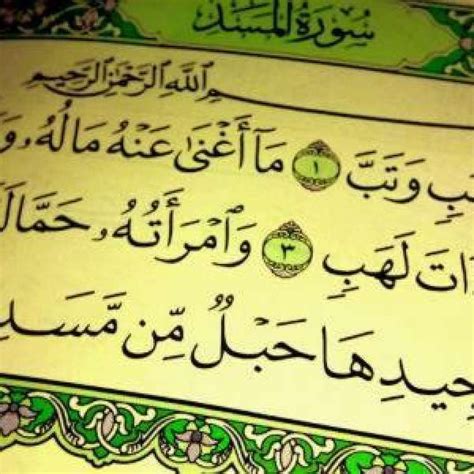 سُورَةُ المَسَدِ
ـمِ ٱللَّهِ ٱلرَّحْمَٰنِ ٱلرَّحِيمِ
ـبٍ وَتَبَّ ١ مَآ أَغْنَىٰ عَنْهُ مَالُهُۥ وَ
ذَاتَ لَهَبٍ ٣ وَٱمْرَأَتُهُۥ حَمَّالَـ
جِيدِهَا حَبْلٌ مِّن مَّسَدٍ